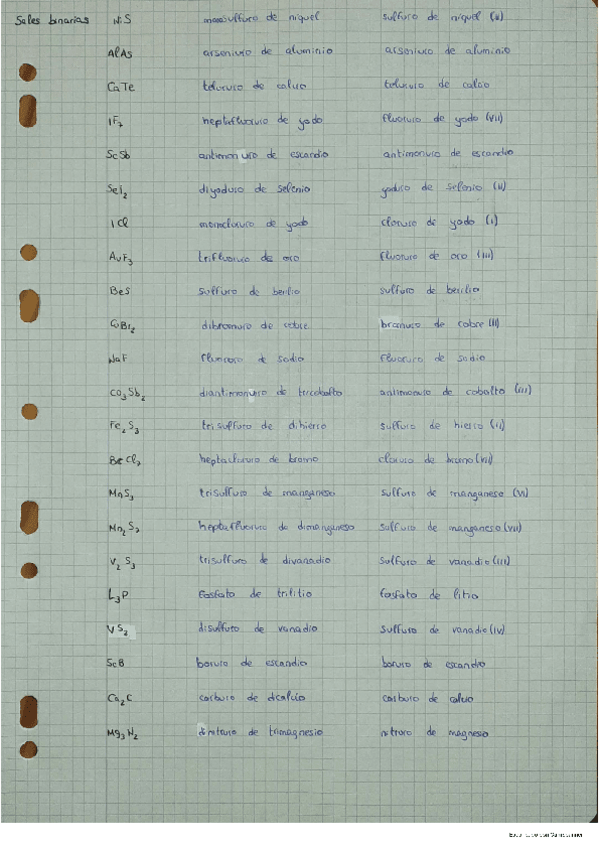 Sales binarias NiS monosulfuro de niquel sulfuro de niquel (II)
AlAs arseniuro de aluminio arseniuro de aluminio
CaTe telururo de calcio telururo de calcio
IF7 heptafluoruro de yodo fluoruro de yodo (VII)
ScSb antimonuro de escandio antimonuro de escandio
SeI2 diyoduro de selenio yoduro de selenio (II)
ICl monocloruro de yodo cloruro de yodo (I)
AuF3 trifluoruro de oro fluoruro de oro (III)
BeS sulfuro de berilio sulfuro de berilio
CuBr2 dibromuro de cobre bromuro de cobre (II)
NaF fluoruro de sodio fluoruro de sodio
CO3Sb2 diantimonuro de tricobalto antimonuro de cobalto (III)
Fe2S3 trisulfuro de dihierro sulfuro de hierro (II)
BrCl7 heptacloruro de bromo cloruro de bromo (VII)
MnS3 trisulfuro de manganeso sulfuro de manganeso (VI)
Mn2S7 heptafluoruro de dimanganeso sulfuro de manganeso (VII)
V2S3 trisulfuro de divanadio sulfuro de vanadio (III)
L3P fosfato de trilitio fosfato de litio
VS2 disulfuro de vanadio sulfuro de vanadio (IV)
ScB boruro de escandio boruro de escandio
Ca2C carburo de dicalcio carburo de calcio
Mg3N2 dinitruro de trimagnesio nitruro de magnesio